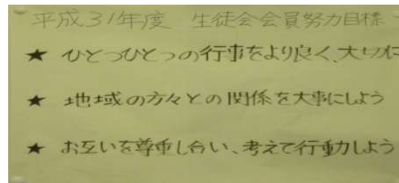 平成31年度 生徒会会員努力目標
★ ひとつひとつの行事をより良く、大切に
★ 地域の方々との関係を大事にしよう
★ お互いを尊重し合い、考えて行動しよう